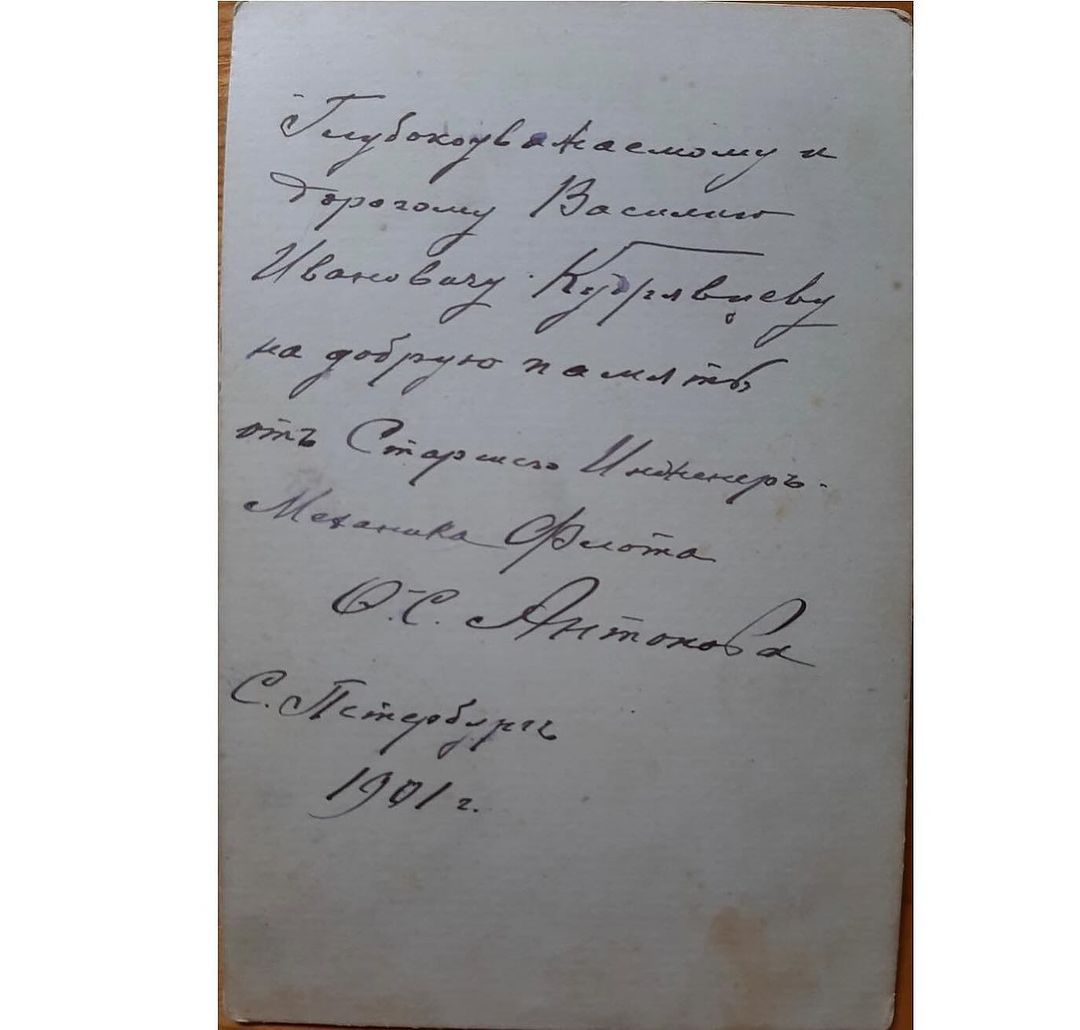 Глубокоуважаемому и
дорогому Василию
Ивановичу Кудрявцеву
на добрую память
отъ Старшего Инженеръ-
Механика Флота
Ѳ. С. Антонова
С. Петербургъ
1901 г.